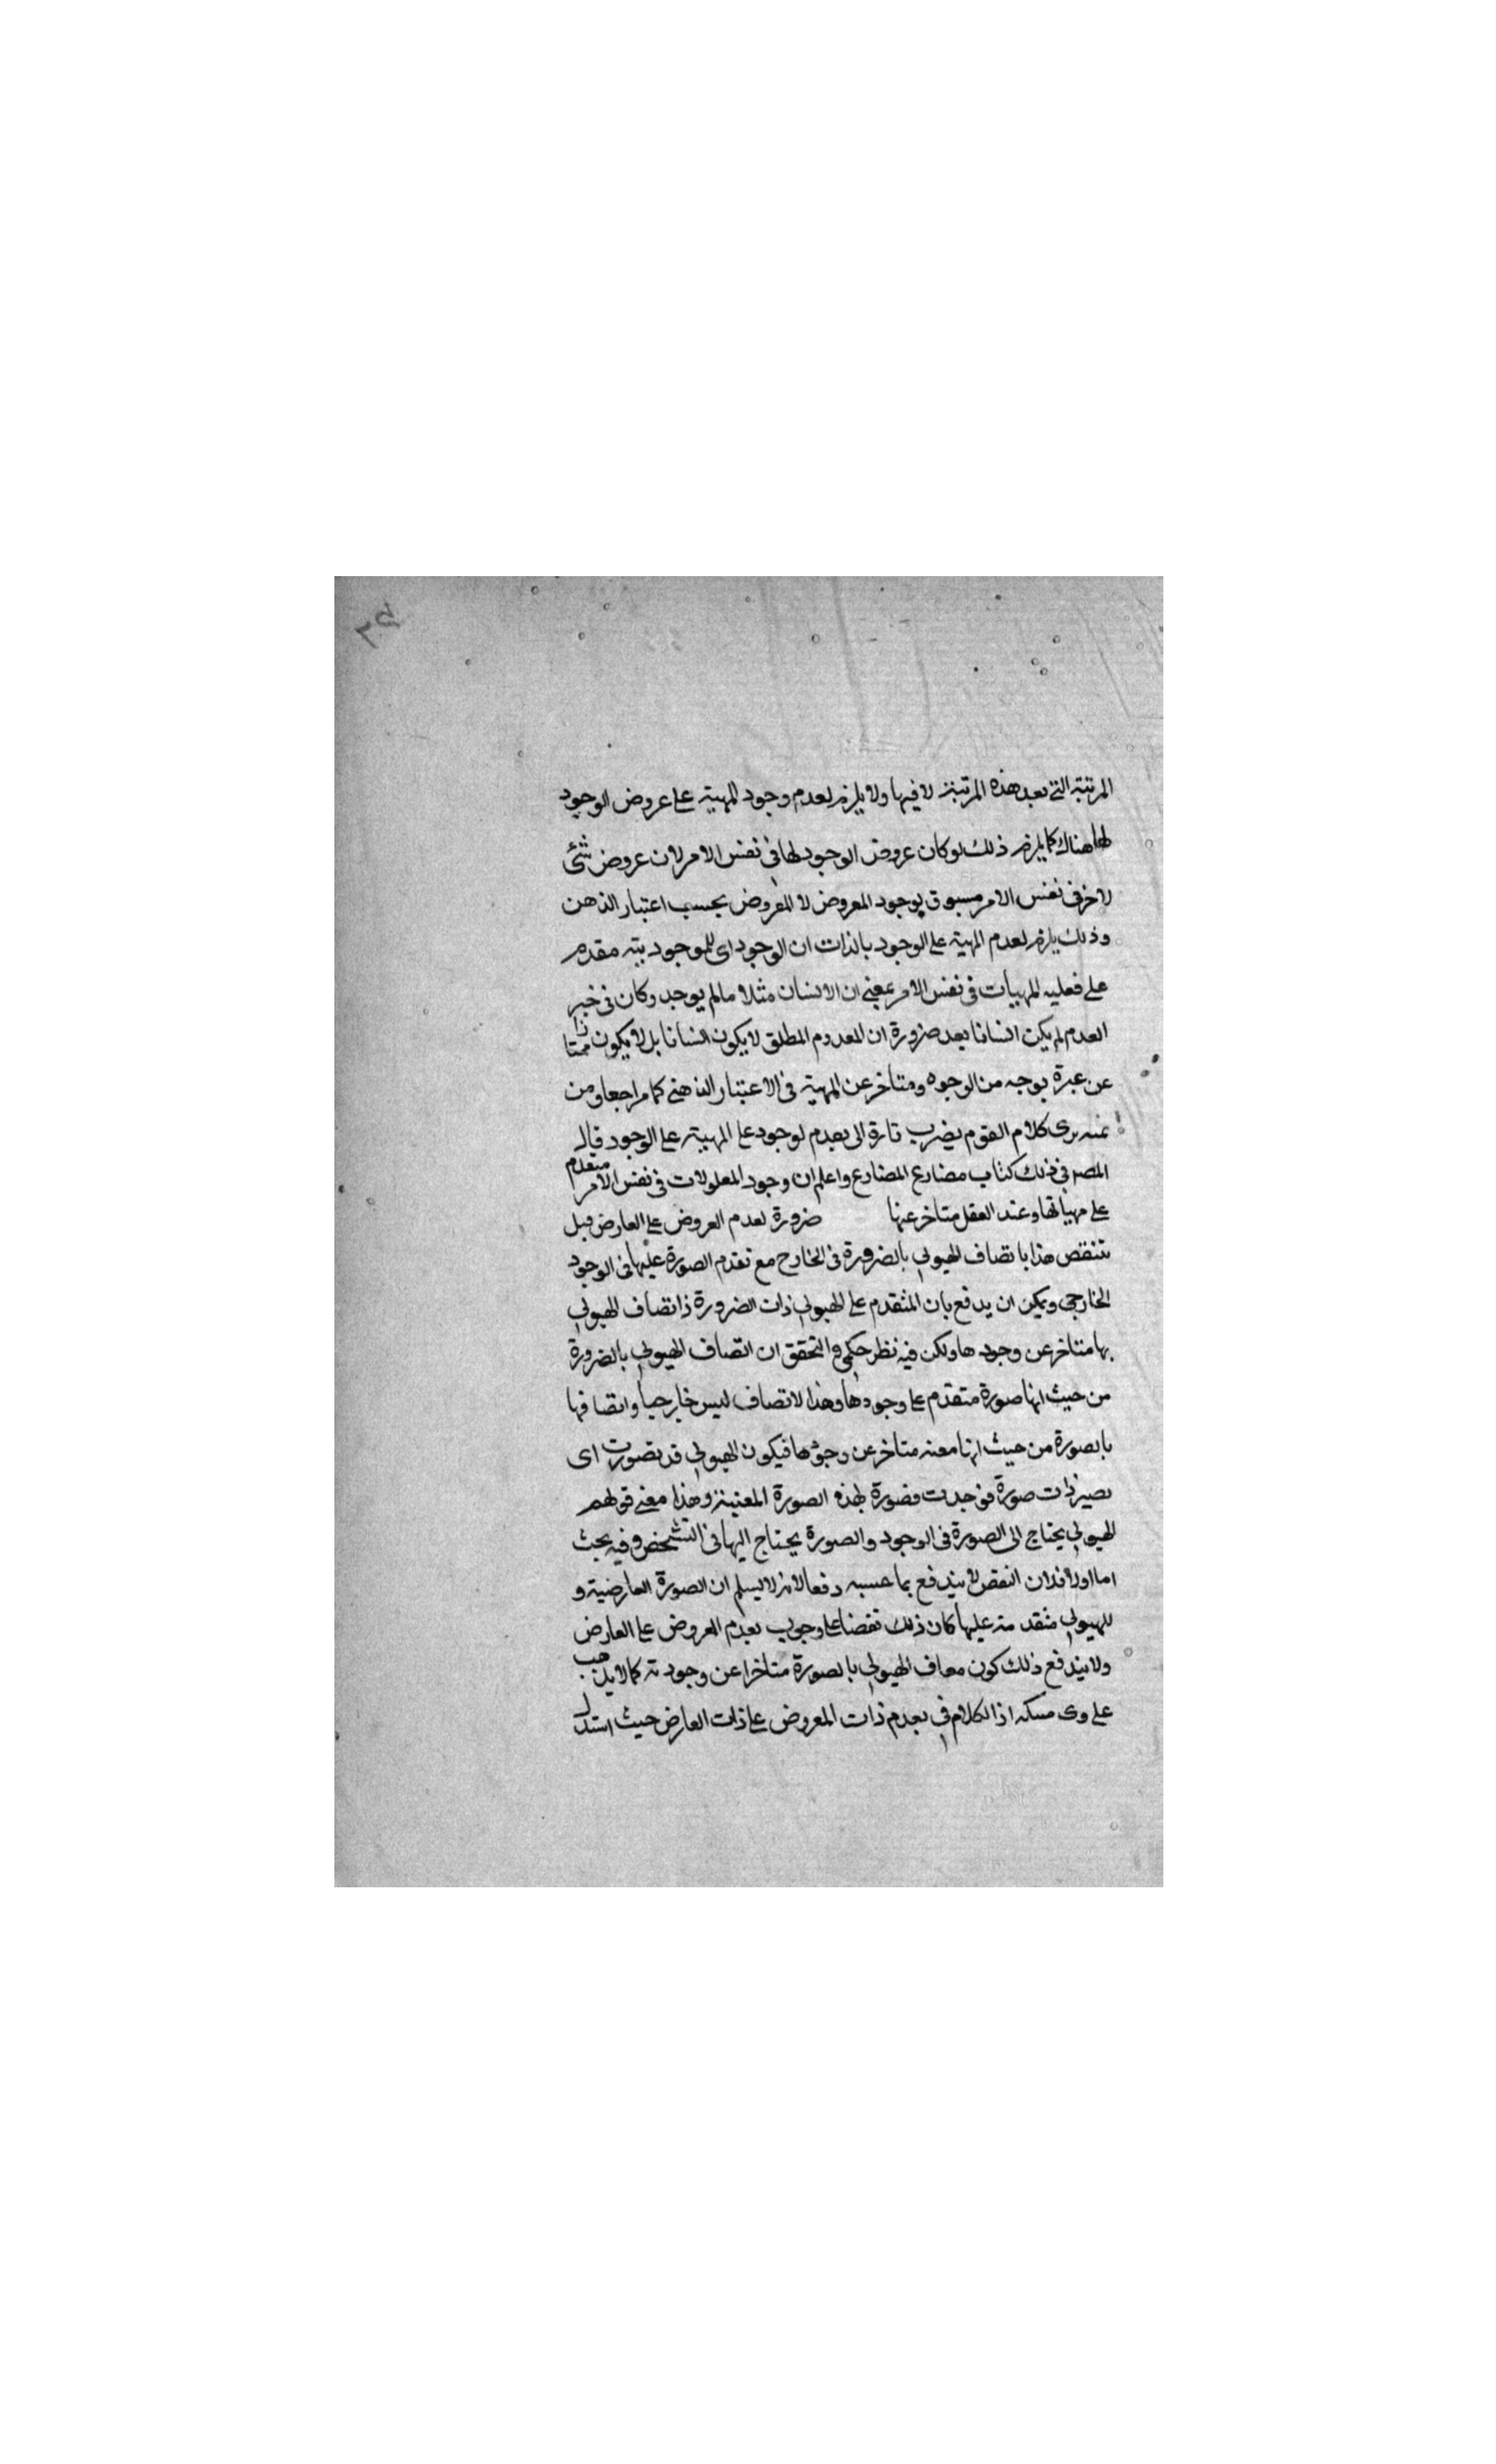 المرتبة التي بعد هذه المرتبة لا فيها ولا يلزم لعدم وجود المهية على عروض الوجود
لها هناك كما يلزم ذلك لو كان عروض الوجود لها في نفس الامر لان عروض شئ
لاخر في نفس الامر مسبوق بوجود المعروض لا المعروض بحسب اعتبار الذهن
وذلك يلزم لعدم المهية على الوجود بالذات ان الوجود اى للموجود يته مقدم
على فعليه المهيات في نفس الامر بمعنى ان الانسان مثلا ما لم يوجد وكان في خبر
العدم لم يكن انسانا بعد ضرورة ان المعدوم المطلق لا يكون انسانا بل لا يكون ممتازا
عن عبرة بوجه من الوجوه ومتاخر عن المهية في الاعتبار الذهني كما مر اجعا ومن
ثمه يرى كلام القوم يضرب تارة الى بعدم لوجود على المهية على الوجود قال
المصر في ذلك كتاب مضارع المضارع واعلم ان وجود المعلولات في نفس الامر متقدم
على مهياتها وعند العقل متاخر عنها ضرورة لعدم العروض على العارض قبل
تنقض هذا باتصاف الهيولى بالضرورة في الخارج مع تقدم الصورة عليها في الوجود
الخارجى ويمكن ان يدفع بان المتقدم على الهيولى ذات الضرورة ذاتصاف الهيولى
بها متاخر عن وجود ها ولكن فيه نظر حكمى والتحقق ان اتصاف الهيولى بالضرورة
من حيث انها صورة متقدم على وجودها وهذا لاتصاف ليس خارجيا واتصافها
بابصورة من حيث انها معنه متاخر عن وجودها فيكون الهيولى قد تصورت اى
تصير ذات صورة فوجدت فصورة لهذه الصورة المعنينة وهذا معنى قولهم
الهيولى يحتاج الى الصورة في الوجود والصورة يحتاج اليها في التشخص وفيه بحث
اما اولا فلان النقض لا يندفع بما حسبه دفعا لانه لا يسلم ان الصورة العارضية و
للهيولى متقد مته عليها كان ذلك نقضا على وجوب بعدم العروض على العارض
ولا يندفع ذلك كون معاف الهيولى بالصورة متاخرا عن وجود ته كما لا يذهب
على وى مسكه اذ الكلام في بعدم ذات المعروض على ذات العارض حيث استدل